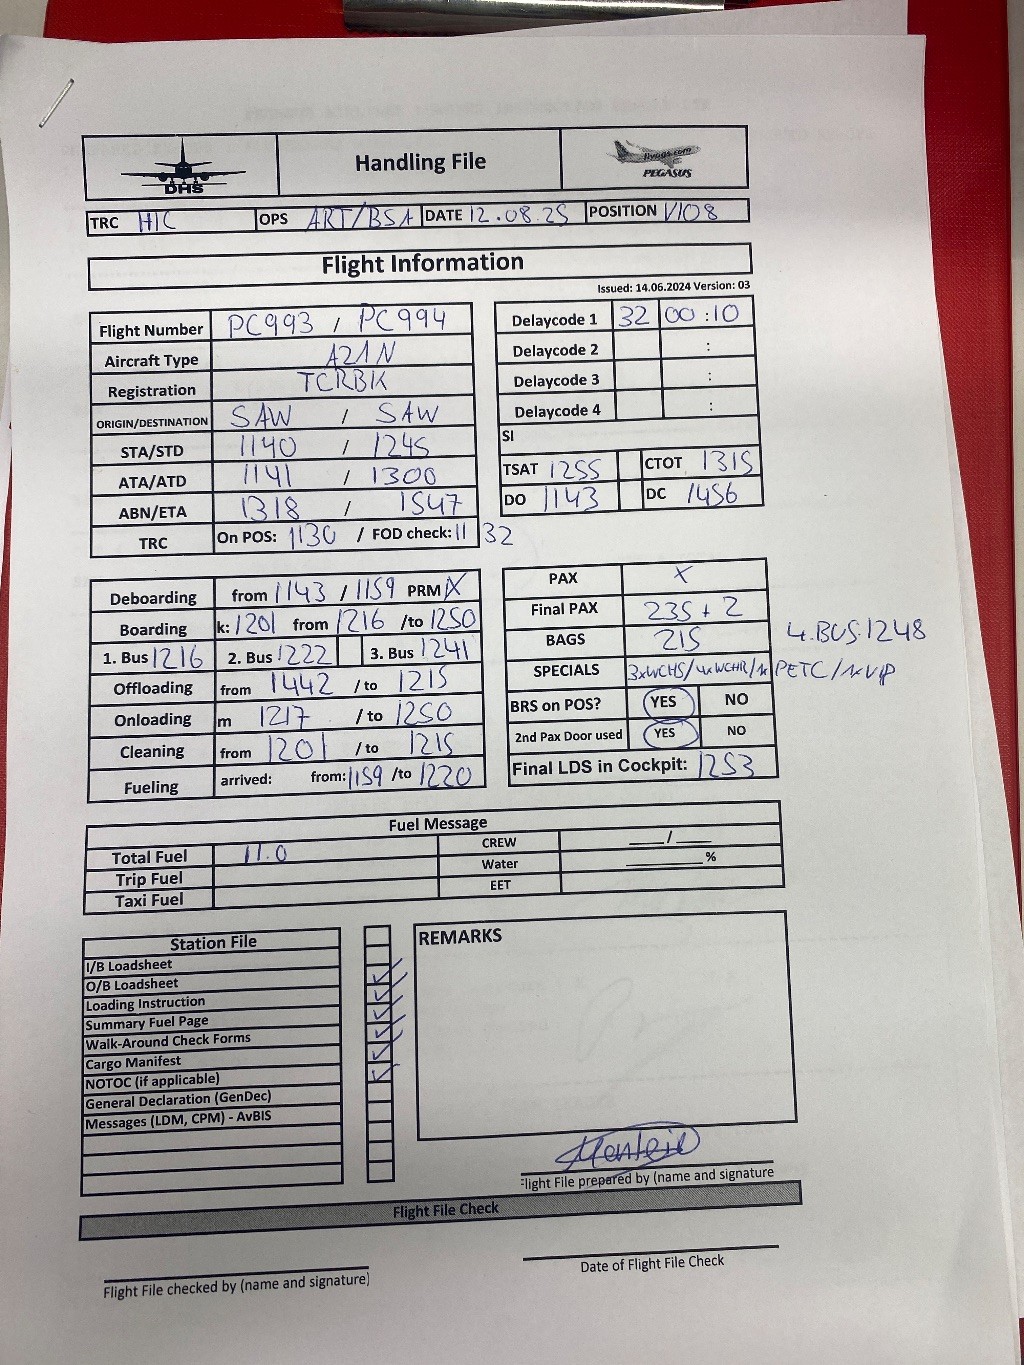 DHS
Handling File
flypgs.com
PEGASUS
TRC HIC OPS ART/BSA DATE 12.08.25 POSITION V108
Flight Information
Issued: 14.06.2024 Version: 03
Flight Number PC993 / PC994
Aircraft Type A21N
Registration TCRBK
ORIGIN/DESTINATION SAW / SAW
STA/STD 1140 / 1245
ATA/ATD 1141 / 1300
ABN/ETA 1318 / 1547
TRC On POS: 1130 / FOD check: 11 32
Delaycode 1 32 00:10
Delaycode 2 :
Delaycode 3 :
Delaycode 4 :
SI
TSAT 1255 CTOT 1315
DO 1143 DC 1456
Deboarding from 1143 / 1159 PRM X
Boarding k: 1201 from 1216 /to 1250
1. Bus 1216 2. Bus 1222 3. Bus 1241
Offloading from 1442 /to 1215
Onloading m 1217 /to 1250
Cleaning from 1201 /to 1215
Fueling arrived: from: 1159 /to 1220
PAX X
Final PAX 235 + 2
BAGS 215
4.BUS.1248
SPECIALS 3xWCHS/4xWCHR/1x PETC/1xVIP
BRS on POS? YES NO
2nd Pax Door used YES NO
Final LDS in Cockpit: 1253
Fuel Message
Total Fuel 11.0 CREW ____/____
Trip Fuel Water ________%
Taxi Fuel EET
Station File
I/B Loadsheet
O/B Loadsheet
Loading Instruction
Summary Fuel Page
Walk-Around Check Forms
Cargo Manifest
NOTOC (if applicable)
General Declaration (GenDec)
Messages (LDM, CPM) - AvBIS
REMARKS
Flight File prepared by (name and signature
Flight File Check
Flight File checked by (name and signature)
Date of Flight File Check